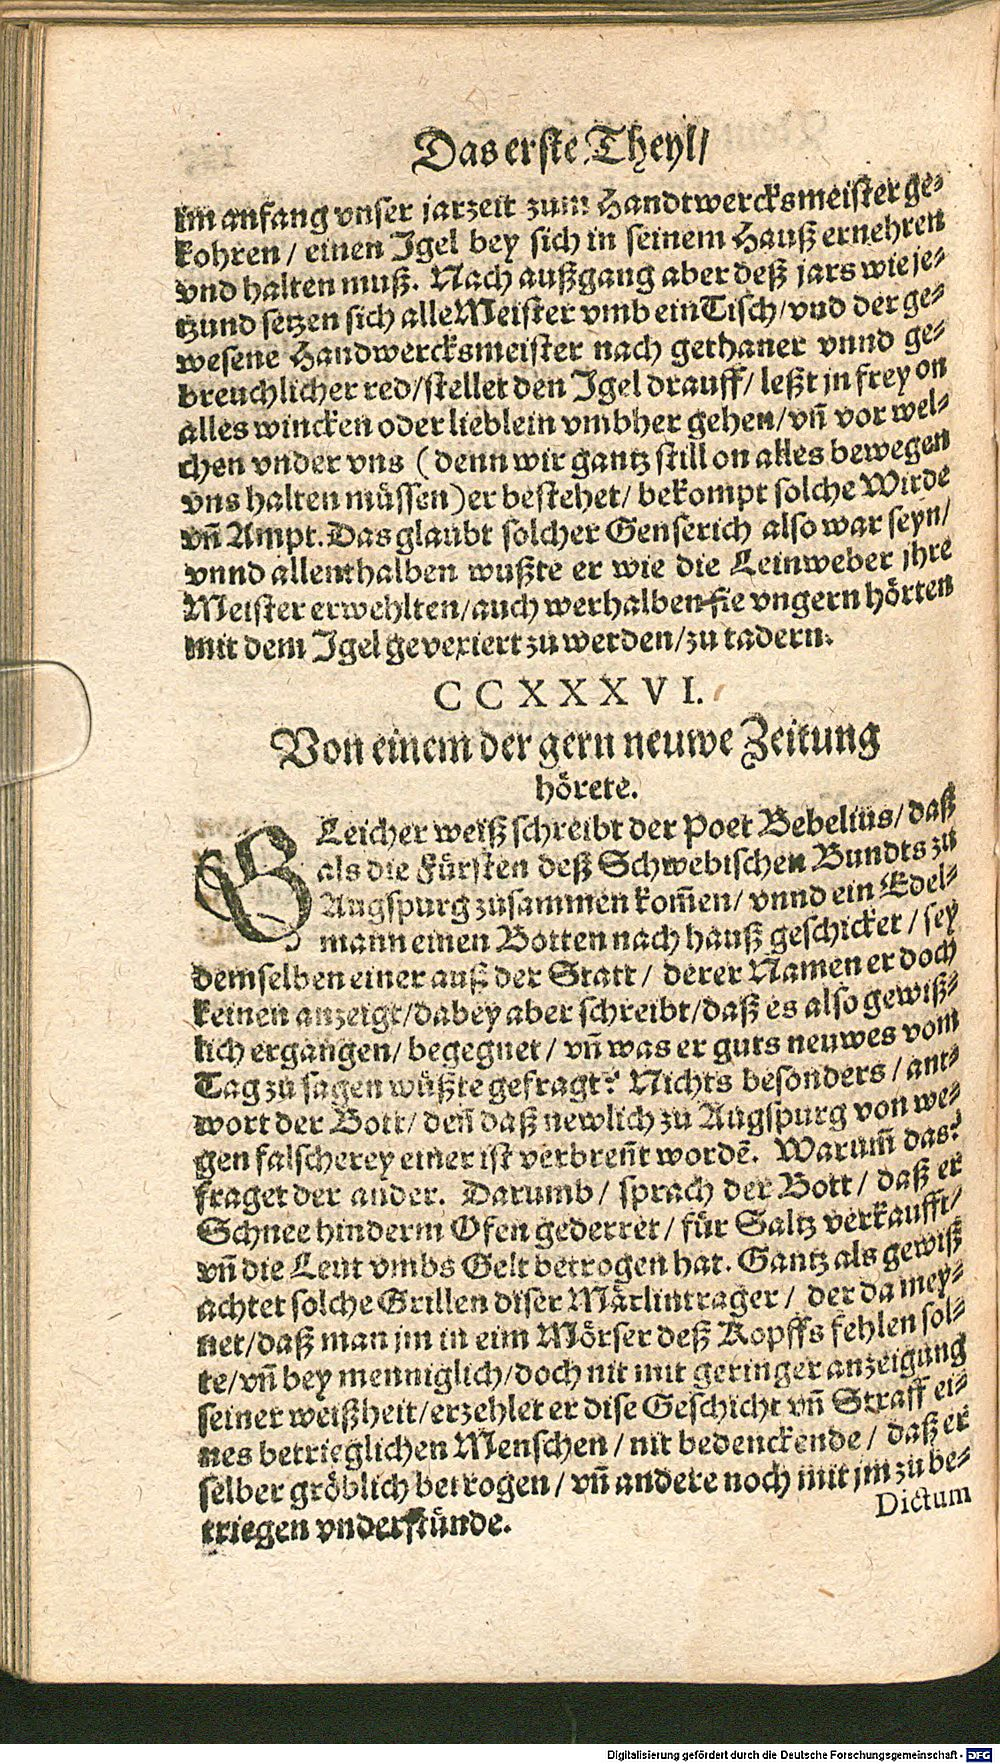 Das erste Theyl/
im anfang vnser jarzeit zum Handtwercksmeister ge-
kohren / einen Igel bey sich in seinem Hauß ernehren
vnd halten muß. Nach außgang aber deß jars wie je-
tzund setzen sich alle Meister vmb ein Tisch/vnd der ge-
wesene Handwercksmeister nach gethaner vnnd ge-
breuchlicher red/stellet den Igel drauff/ leßt jn frey on
alles wincken oder lieblein vmbher gehen/vn̄ vor wel-
chen vnder vns (denn wir gantz still on alles bewegen
vns halten müssen) er bestehet/ bekompt solche Wirde
vn̄ Ampt. Das glaubt solcher Genserich also war seyn/
vnnd allenthalben wußte er wie die Leinweber jhre
Meister erwehlten/auch werhalben sie vngern hörten
mit dem Igel gevexiert zu werden/zu tadern.
CCXXXVI.
Von einem der gern neuwe Zeitung
hörete.
GLeicher weiß schreibt der Poet Bebelius/ daß
als die Fürsten deß Schwebischen Bundts zu
Augspurg zusammen kom̄en/ vnnd ein Edel-
mann einen Botten nach hauß geschicket / sey
demselben einer auß der Statt / derer Namen er doch
keinen anzeigt/dabey aber schreibt/daß es also gewiß-
lich ergangen/ begegnet / vn̄ was er guts neuwes vom
Tag zu sagen wüßte gefragt? Nichts besonders / ant-
wort der Bott/ den̄ daß newlich zu Augspurg von we-
gen falscherey einer ist verbren̄t wordē. Warum̄ das?
fraget der ander. Darumb / sprach der Bott / daß er
Schnee hinderm Ofen gederret / für Saltz verkaufft/
vn̄ die Leut vmbs Gelt betrogen hat. Gantz als gewiß
achtet solche Grillen diser Märlintrager / der da mey-
net/daß man jm in eim Mörser deß Kopffs fehlen sol-
te/vn̄ bey menniglich/doch nit mit geringer anzeigung
seiner weißheit/erzehlet er dise Geschicht vn̄ Straff ei-
nes betrieglichen Menschen / nit bedenckende / daß er
selber gröblich betrogen / vn̄ andere noch mit jm zu be-
triegen vnderstünde.
Dictum
Digitalisierung gefördert durch die Deutsche Forschungsgemeinschaft - DFG